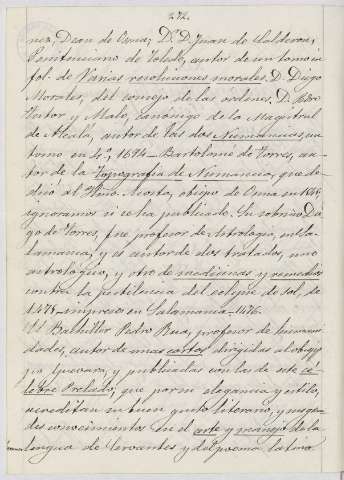 272.
nez, Dean de Osma; Dr. D. Juan de Calderon,
Penitenciario de Toledo, autor de un tomo in
fol. de Varias resoluciones morales. D. Diego
Morales, del consejo de las ordenes. D. Pedro
Tutor y Malo, canónigo de la Magistral
de Alcalá, autor de las dos Numancias, un
tomo en 4º, 1694 — Bartolomé de Torres, au-
tor de la Topografia de Numancia, que de-
dicó al Acosta, obispo de Osma en
ignoramos si se ha publicado. Su sobrino Di
go de Torres, fue profesor de Astrologia, en Sa
lamanca, y es autor de dos tratados, uno
astrológico, y otro de medicinas y remedios
contra la pestilencia del eclipse de sol, de
1478 — impreso en Salamanca — 1476.
El Bachiller Pedro Rua, profesor de humani
dades, autor de unas cartas dirigidas al obispo
Guevara, y publicadas con las de este cé-
lebre Prelado, que por su elegancia y estilo,
acreditan su buen gusto literario, y sus gran-
des conocimientos en el arte y manejo de la
lengua de Cervantes y del poema latino.